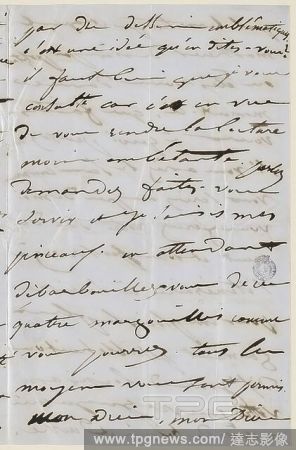 par des dessins emblématiques
c'est une idée qu'en dites-vous?
il faut bien que je vous
consulte car c'est en vue
de vous rendre la lecture
moins embêtante. parlez
demandez faites-vous
servir et je saisis mes
pinceaux. en attendant
débarbouillez-vous de ces
quatre margouillis comme
vous pourrez. tous les
moyens vous sont permis.
mon Dieu, mon Dieu
TPG
www.tpgnews.com / 達志影像